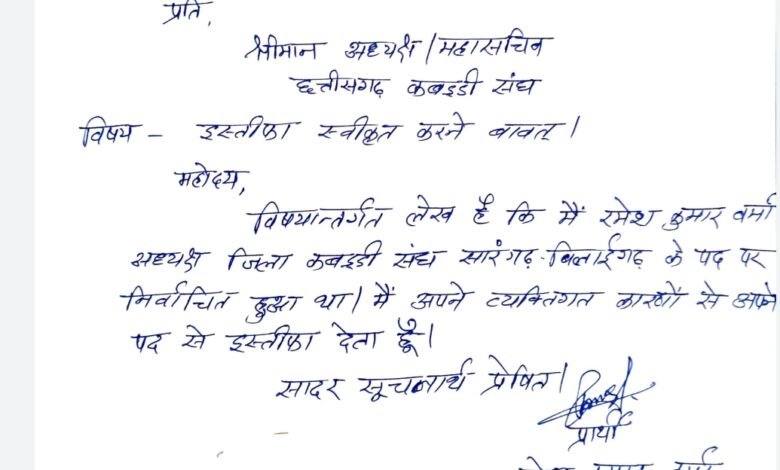 प्रति,
श्रीमान अध्यक्ष / महासचिव
छत्तीसगढ़ कबड्डी संघ
विषय - इस्तीफा स्वीकृत करने बावत् ।
महोदय,
विषयान्तर्गत लेख है कि मैं रमेश कुमार वर्मा
अध्यक्ष जिला कबड्डी संघ सारंगढ़-बिलाईगढ़ के पद पर
निर्वाचित हुआ था। मैं अपने व्यक्तिगत कारणों से अपने
पद से इस्तीफा देता हूँ।
सादर सूचनार्थ प्रेषित।
प्रार्थी